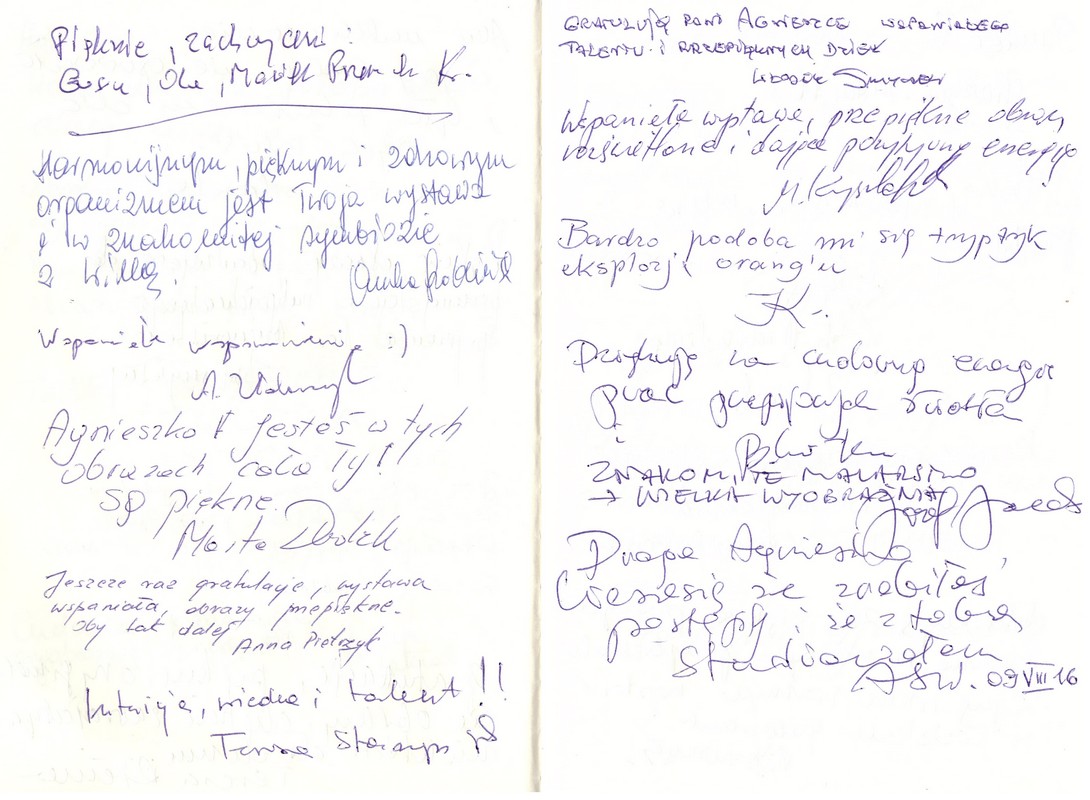 Pięknie, zachwyceni!
Gosia, Ola, Marek K.
Harmonijnym, pięknym i zdrowym
organizmem jest Twoja wystawa
i w znakomitej symbiozie
z willą.
Anna
Wspaniałe wspomnienie :)
A.
Agnieszko! Jesteś w tych
obrazach cała Ty!!
Są piękne.
Marta
Jeszcze raz gratulacje, wystawa
wspaniała, obrazy przepiękne.
Oby tak dalej
Anna Pietrzyk
Intuicja, wiedza i talent!!
Teresa
GRATULUJĘ PANI AGNIESZCE WSPANIAŁEGO
TALENTU I PRZEPIĘKNYCH DZIEŁ
Wspaniała wystawa, przepiękne obrazy
rozświetlone i dające pozytywną energię
M.
Bardzo podoba mi się tryptyk
eksplozji orange'u
K.
Dziękuję za cudowną energię
prac
światła
ZNAKOMITE MALARSTWO
→ WIELKA WYOBRAŹNIA
Józef
Droga Agnieszko,
Cieszę się że zrobiłaś
postępy i że z tobą
studiowałem
ASW. 09 VIII 16